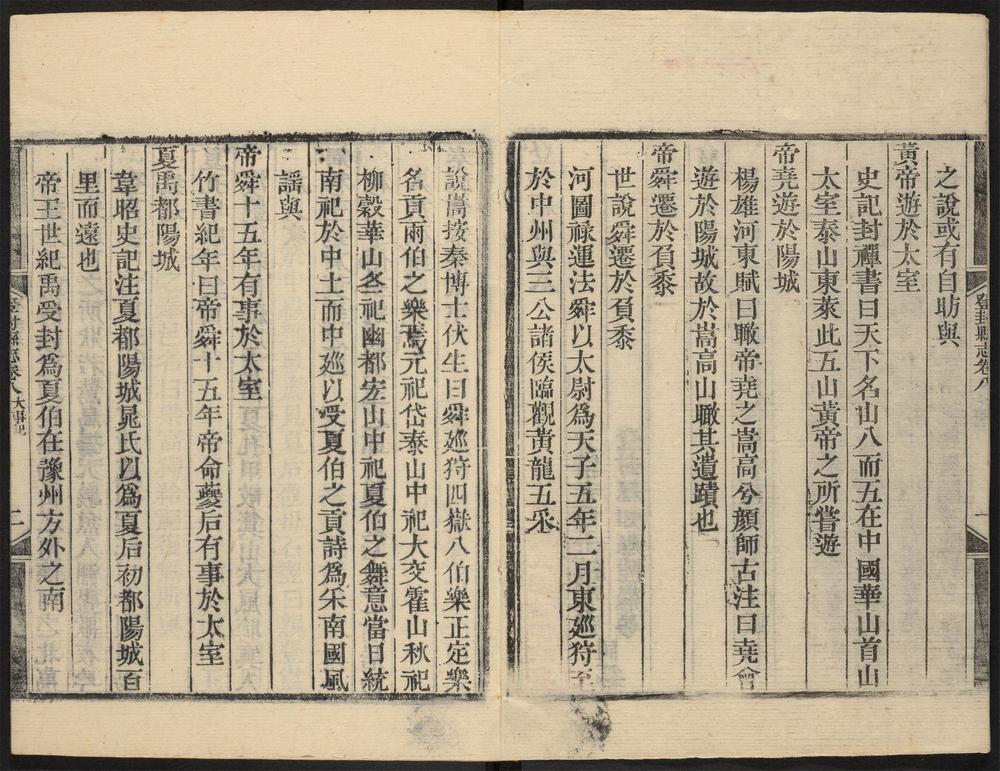 登封縣志卷八
一
之說或有自助與
黃帝遊於太室
史記封禪書曰天下名山八而五在中國華山首山
太室泰山東萊此五山黃帝之所嘗遊
帝堯遊於陽城
楊雄河東賦曰瞰帝堯之嵩高兮顏師古注曰堯會
遊於陽城故於嵩高山瞰其遺蹟也
帝舜遷於負黍
世說舜遷於負黍
河圖祿運法舜以太尉爲天子五年二月東廵狩至
於中州與三公諸侯臨觀黃龍五采
說嵩按秦博士伏生曰舜廵狩四嶽八伯樂正定樂
名貢兩伯之樂焉元祀岱泰山中祀大交霍山秋祀
柳穀華山冬祀幽都宏山中祀夏伯之舞意當日統
南祀於中土而中廵以受夏伯之貢詩爲采南國風
謠與
帝舜十五年有事於太室
竹書紀年曰帝舜十五年帝命夔后有事於太室
夏禹都陽城
韋昭史記注夏都陽城晁氏以爲夏后初都陽城百
里而遠也
帝王世紀禹受封爲夏伯在豫州方外之南
登封縣志卷八大事記
二